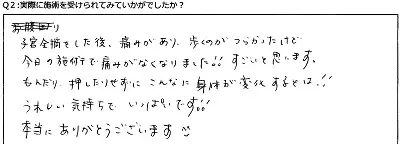 Q2:実際に施術を受けられてみていかがでしたか?
子宮全摘をした後、痛みがあり、歩くのがつらかったけど
今日の施術で痛みがなくなりました!! すごいと思います。
もんだり、押したりせずに こんなに 身体が変化するとは!!
うれしい気持ちで いっぱいです!!
本当に ありがとうございます